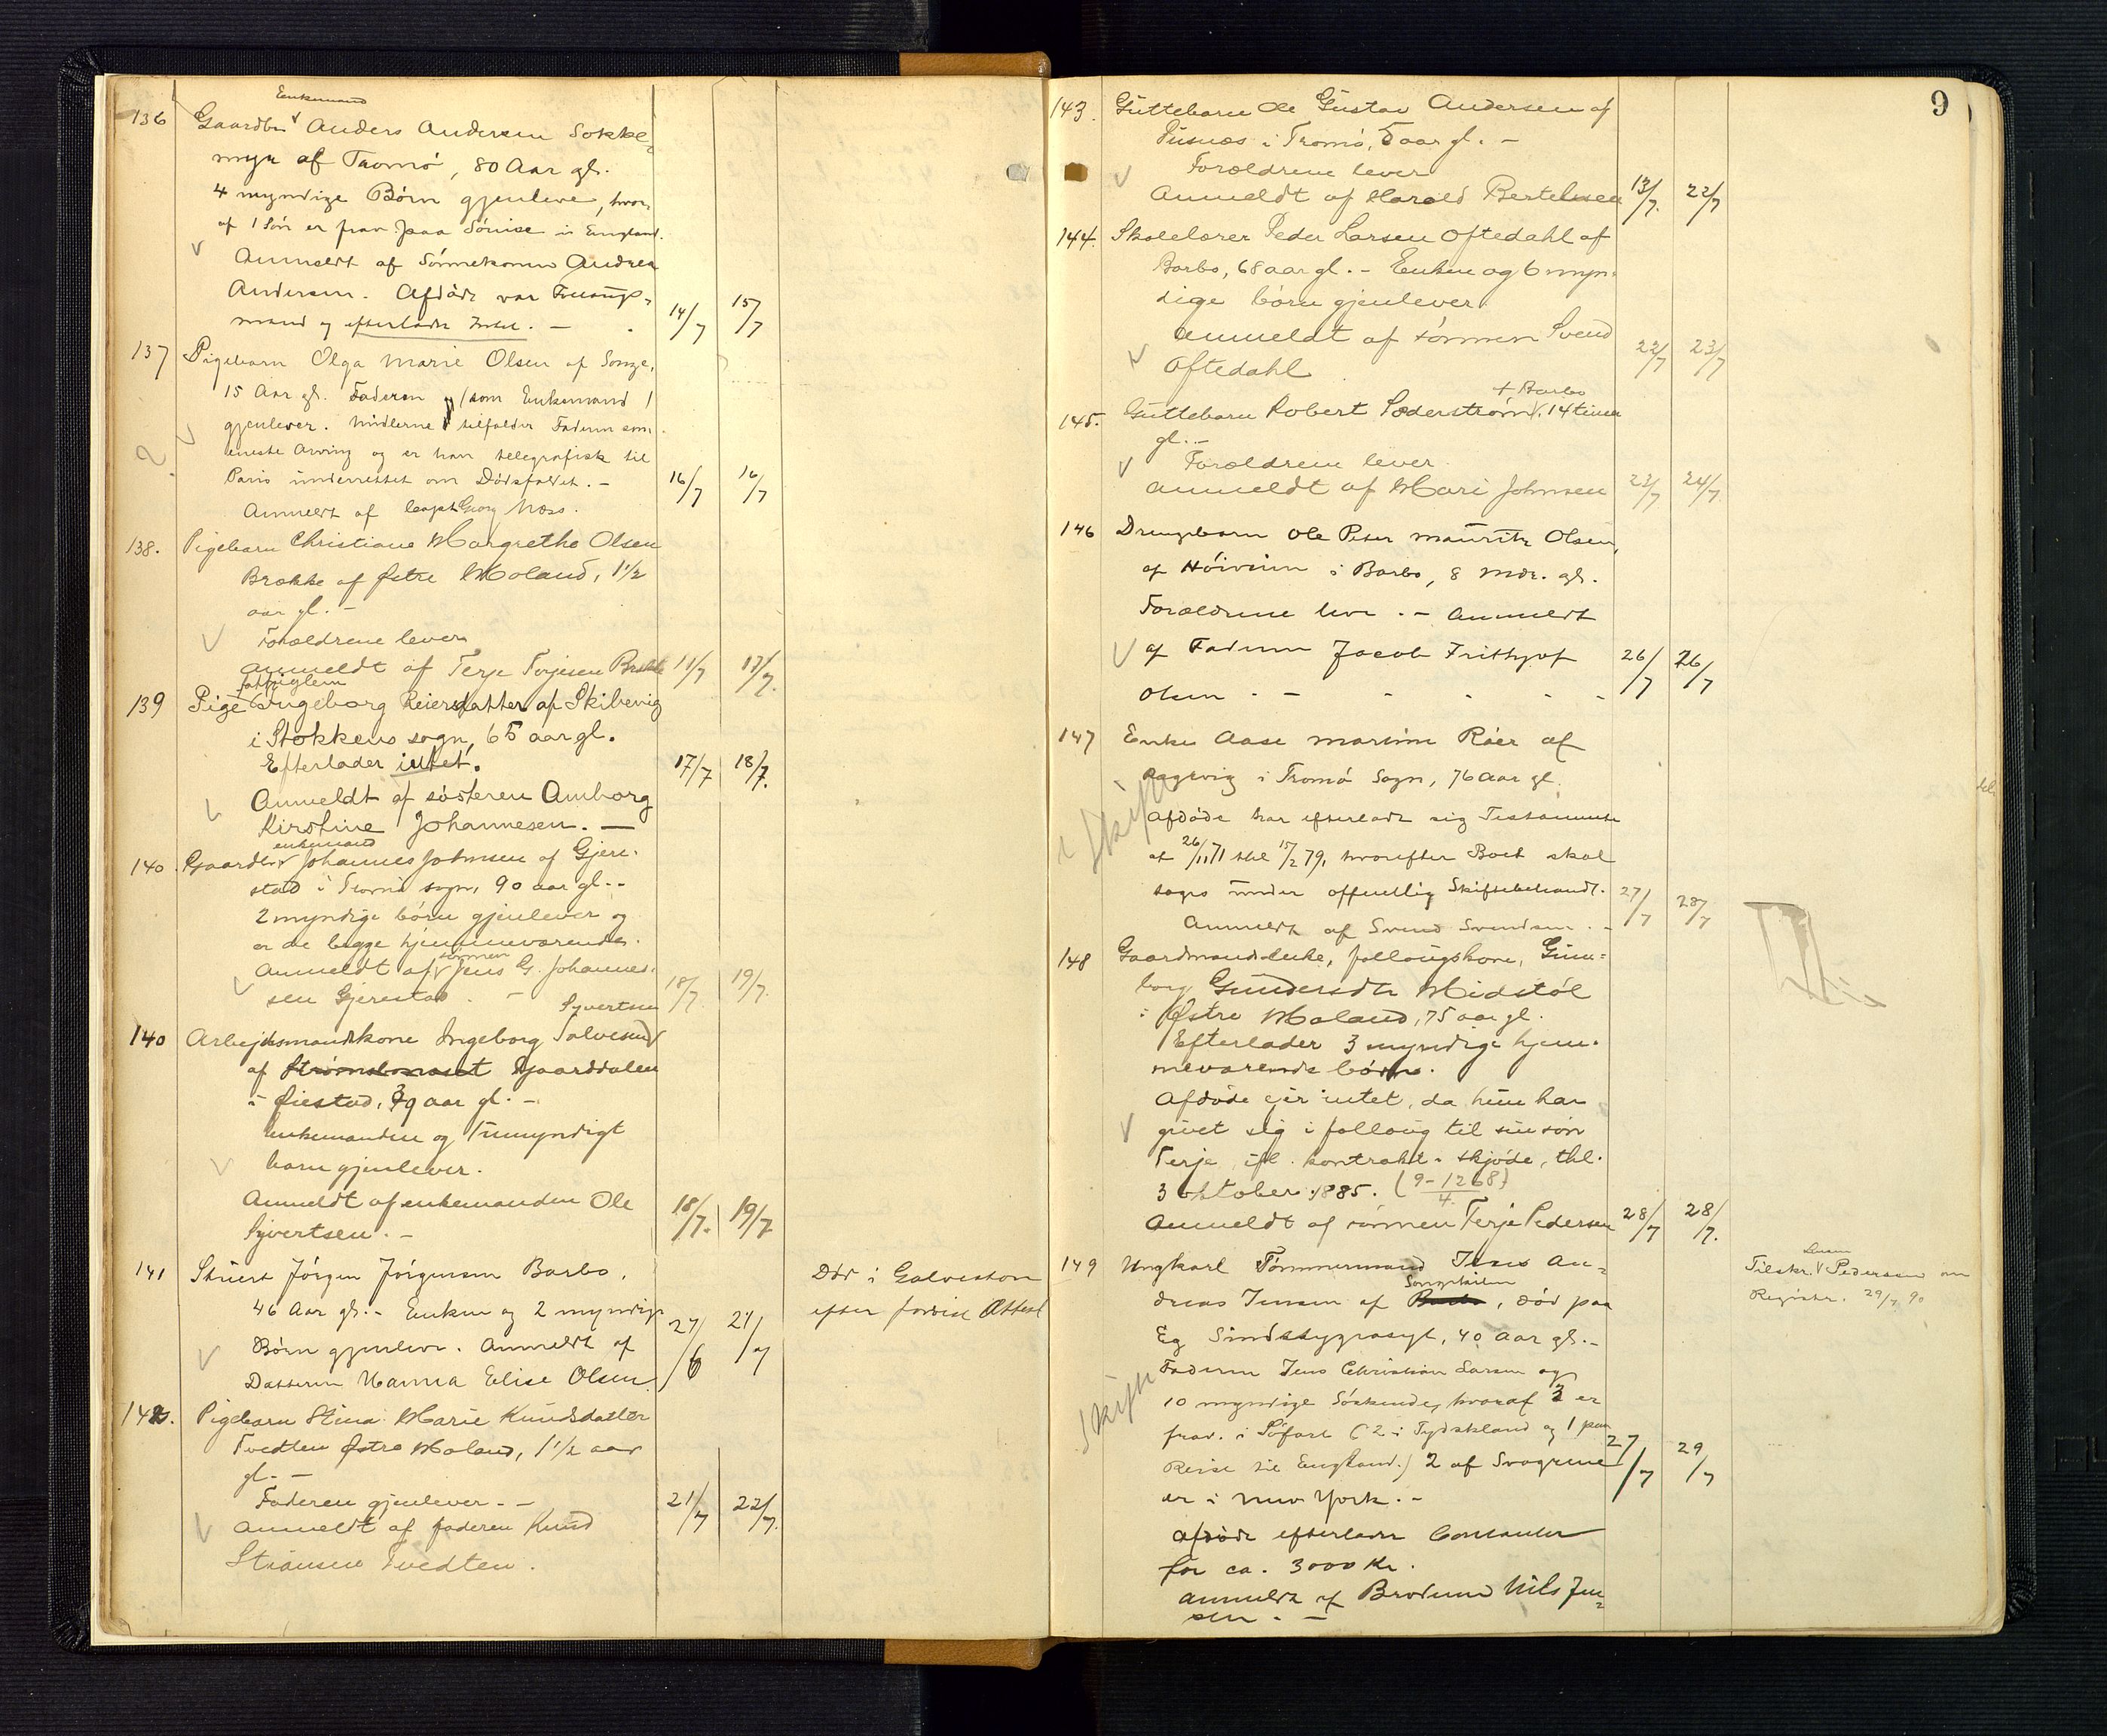 136
Enkemand
Gaardbr. Anders Andersen Sokke-
myr af Tromø, 80 Aar gl.
4 myndige Børn gjenleve, hvor-
af 1 Søn er frav. paa Sørejse i England.
Anmeldt af Sønnekonen Andrea
Andersen. Afdøde var Follaugs-
mand og efterlader Intet. —
14/7 15/7
137
Pigebarn Olga Marie Olsen af Songe,
15 Aar gl. Faderen (som Enkemand)
gjenlever. Midlerne tilfalder Faderen som
eneste Arving og er han telegrafisk til
Paris underrettet om Dødsfaldet. —
16/7 16/7
Anmeldt af Capt. Georg Næss.
138.
Pigebarn Christiane Margrethe Olsen
Brække af Østre Moland, 1½
aar gl. —
Forældrene lever
Anmeldt af Terje Terjesen Brække
17/7 17/7.
139
fattiglem
Pige Ingeborg Reiersdatter af Skibevig
i Stokkens sogn, 65 aar gl.
Efterlader intet.
17/7 18/7.
Anmeldt af søsteren Amborg
Kirstine Johannesen. —
140.
enkemand
Gaardbr. Johannes Johnsen af Gjere-
stad i Tromø sogn, 90 aar gl. -
2 myndige børn gjenlever og
er de begge hjemmeværende.
sønnen
Anmeldt af Jens G. Johannes-
sen Gjerestad. —
18/7. 19/7.
Syvertsen
140
Arbejdsmandskone Ingeborg Salvesen
af Gjaarddalen
i Øiestad, 39 aar gl. —
enkemanden og 1 umyndigt
barn gjenlever.
Anmeldt af enkemanden Ole
Syvertsen. —
18/7. 19/7
141
Stuert Jørgen Jørgensen Barbo,
46 Aar gl. - Enken og 2 myndige
Børn gjenleve. Anmeldt af
Datteren Hanna Elise Olsen.
21/7
Død i Galveston
efter forevist Attest
142.
Pigebarn Stina Marie Knudsdatter
Tvedten Østre Moland, 1½ aar
gl. —
Faderen gjenlever. - —
Anmeldt af faderen Knud
Tvedten.
21/7 22/7.
9
143.
Guttebarn Ole Gustav Andersen af
Pusnes i Tromø, 5 aar gl. —
Forældrene lever
Anmeldt af Harald Bertelsen
13/7. 22/7
144.
Skolelærer Peder Larsen Oftedahl af
Barbo, 68 aar gl. - Enken og 6 myn-
dige børn gjenlever.
Anmeldt af sønnen Svend
Oftedahl
22/7 23/7
145.
+ Barbo
Guttebarn Robert Søderstrøm, 14 timer
gl. -
Forældrene lever
Anmeldt af Mari Johnsen
23/7 24/7.
146
Drengebarn Ole Peter Mauritz Olsen,
af Høivin i Barbo, 8 Mdr. gl.
Forældrene leve. - Anmeldt
af Faderen Jacob Frithjof
Olsen. —
26/7 26/7
147
Enke Aase Marime Röer af
Ragevig i Tromø Sogn, 76 Aar gl.
i skifte
Afdøde har efterladt sig Testamente
af 26/11 71 thl 15/2 79, hvorefter Boet skal
tages under offentlig Skiftebehandl.
Anmeldt af Svend Svendsen. -
27/7 28/7
148
Gaardmandsenke, follougskone, Gun-
borg Gundersdtr Midstøl
i Østre Moland, 75 aar gl.
Efterlader 3 myndige hjem-
meværende børn.
Afdøde ejer intet, da hun har
givet sig i follaug til sin søn
Terje, ifl. kontrakt - skjøde, thl.
3 oktober 1885. (9-1268/4.)
Anmeldt af sønnen Terje Pedersen
28/7 28/7.
149
Ungkarl Tømmermand Jens An-
Songekilen
dreas Jensen af Barbo, død paa
Eg Sindssygeasyl, 40 Aar gl. -
skifte
Faderen Jens Christian Larsen og
10 myndige Søskende, hvoraf 3 er
frav. i Søfart (2 i Tydskland og 1 paa
Reise til England.) 2 af Svogrene
er i New York. -
27/7 29/7
Afdøde efterlader Contanter
for ca. 3000 Kr.
Anmeldt af Broderen Nils Jen-
sen. —
Lensm
Tilskr. Pedersen om
Registr. 29/7 90